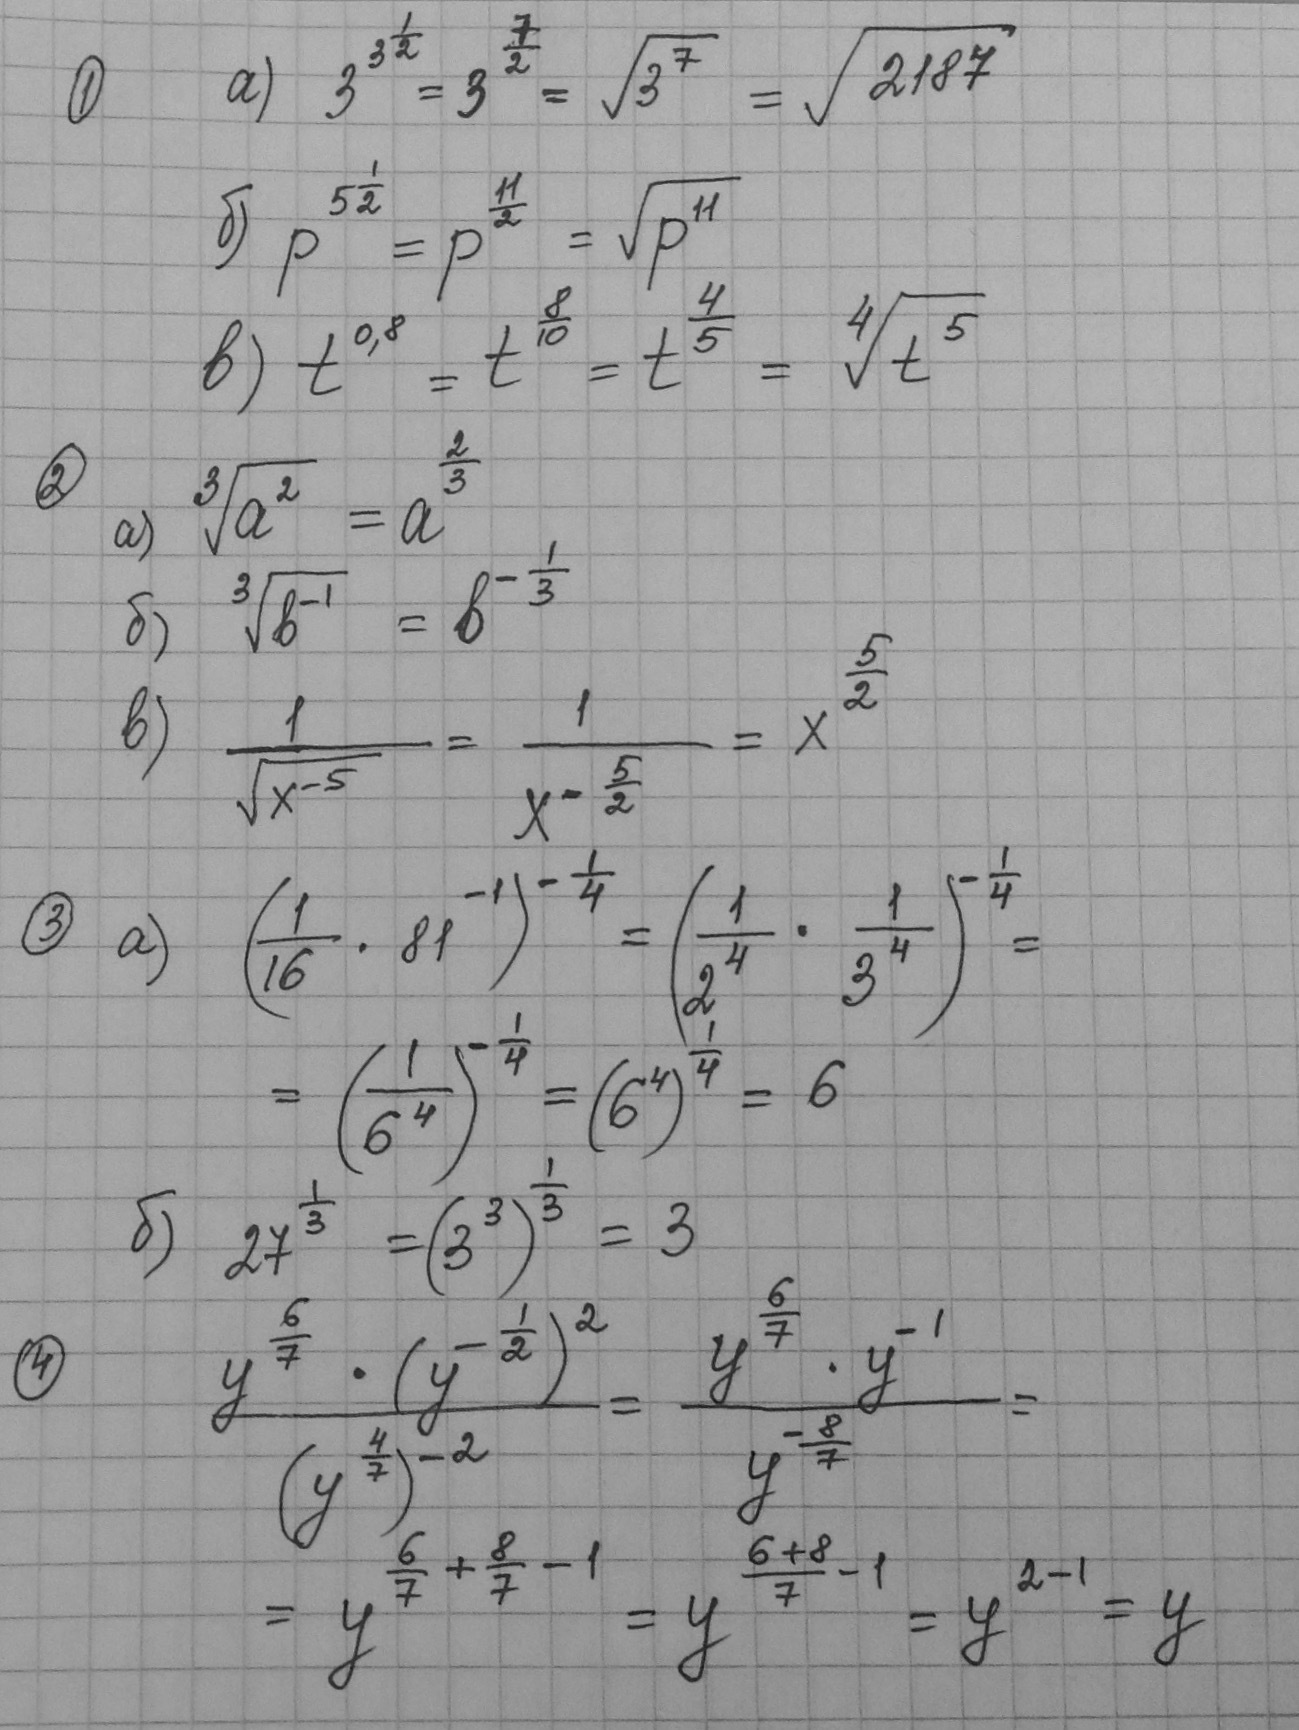 ① а) 3^{3\frac{1}{2}} = 3^{\frac{7}{2}} = \sqrt{3^7} = \sqrt{2187}
б) p^{5\frac{1}{2}} = p^{\frac{11}{2}} = \sqrt{p^{11}}
в) t^{0,8} = t^{\frac{8}{10}} = t^{\frac{4}{5}} = \sqrt[4]{t^5}
② а) \sqrt[3]{a^2} = a^{\frac{2}{3}}
б) \sqrt[3]{b^{-1}} = b^{-\frac{1}{3}}
в) \frac{1}{\sqrt{x^{-5}}} = \frac{1}{x^{-\frac{5}{2}}} = x^{\frac{5}{2}}
③ а) (\frac{1}{16} · 81^{-1})^{-\frac{1}{4}} = (\frac{1}{2^4} · \frac{1}{3^4})^{-\frac{1}{4}} =
= (\frac{1}{6^4})^{-\frac{1}{4}} = (6^4)^{\frac{1}{4}} = 6
б) 27^{\frac{1}{3}} = (3^3)^{\frac{1}{3}} = 3
④ \frac{y^{\frac{6}{7}} · (y^{-\frac{1}{2}})^2}{(y^{\frac{4}{7}})^{-2}} = \frac{y^{\frac{6}{7}} · y^{-1}}{y^{-\frac{8}{7}}} =
= y^{\frac{6}{7}+\frac{8}{7}-1} = y^{\frac{6+8}{7}-1} = y^{2-1} = y